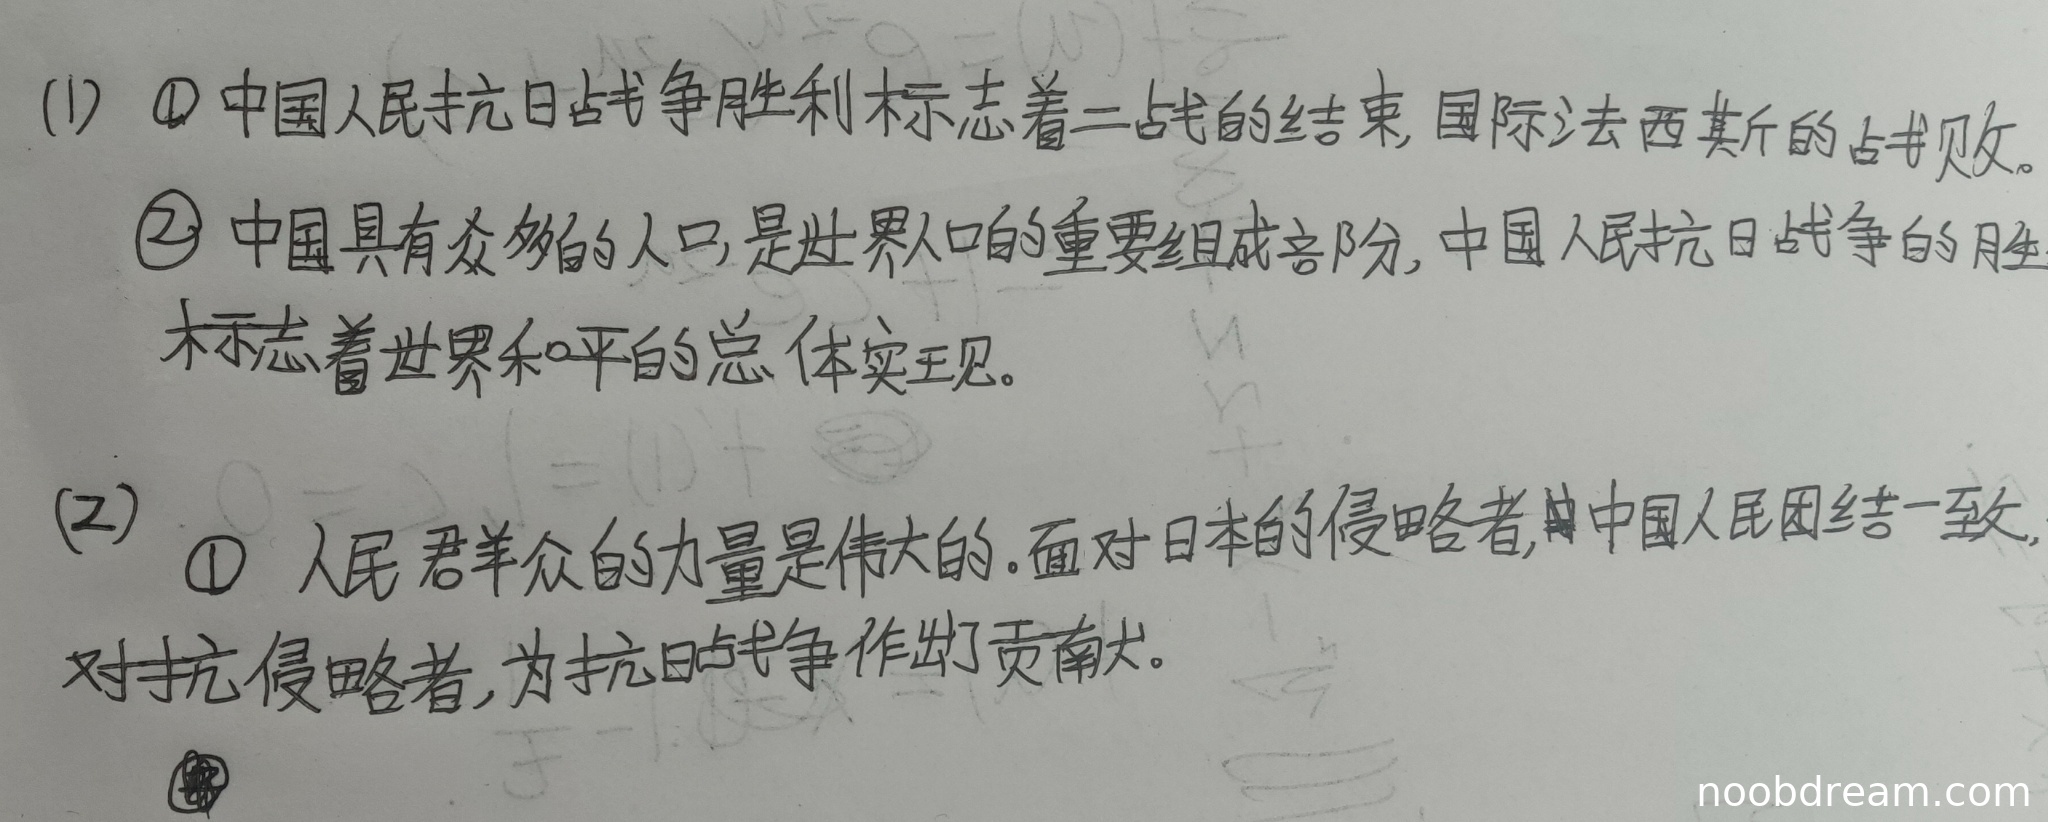 (1) ① 中国人民抗日战争胜利标志着二战的结束,国际法西斯的战败。
② 中国具有众多的人口,是世界人口的重要组成部分,中国人民抗日战争的胜
标志着世界和平的总体实现。
(2) ① 人民群众的力量是伟大的.面对日本的侵略者,中国人民团结一致,
对抗侵略者,为抗日战争作出了贡献。
noobdream.com